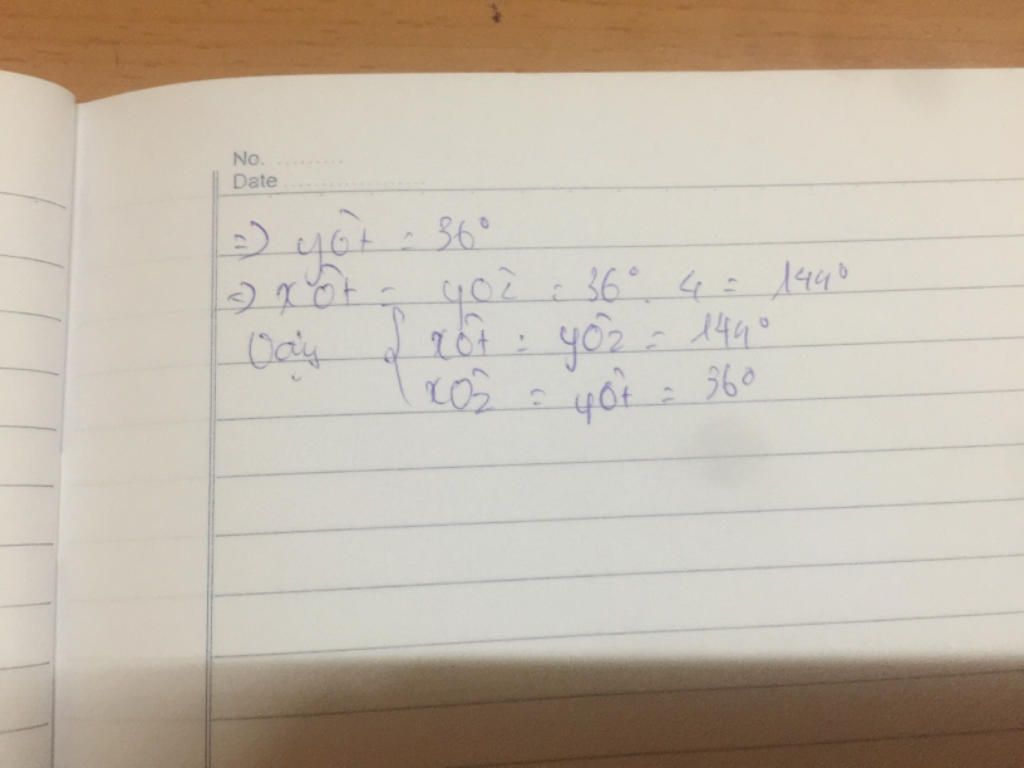 No. ..........
Date ....................
=> yÔt = 36°
=> xÔt = yÔz = 36° . 4 = 144°
Vậy { xÔt = yÔz = 144°
xÔz = yÔt = 36°